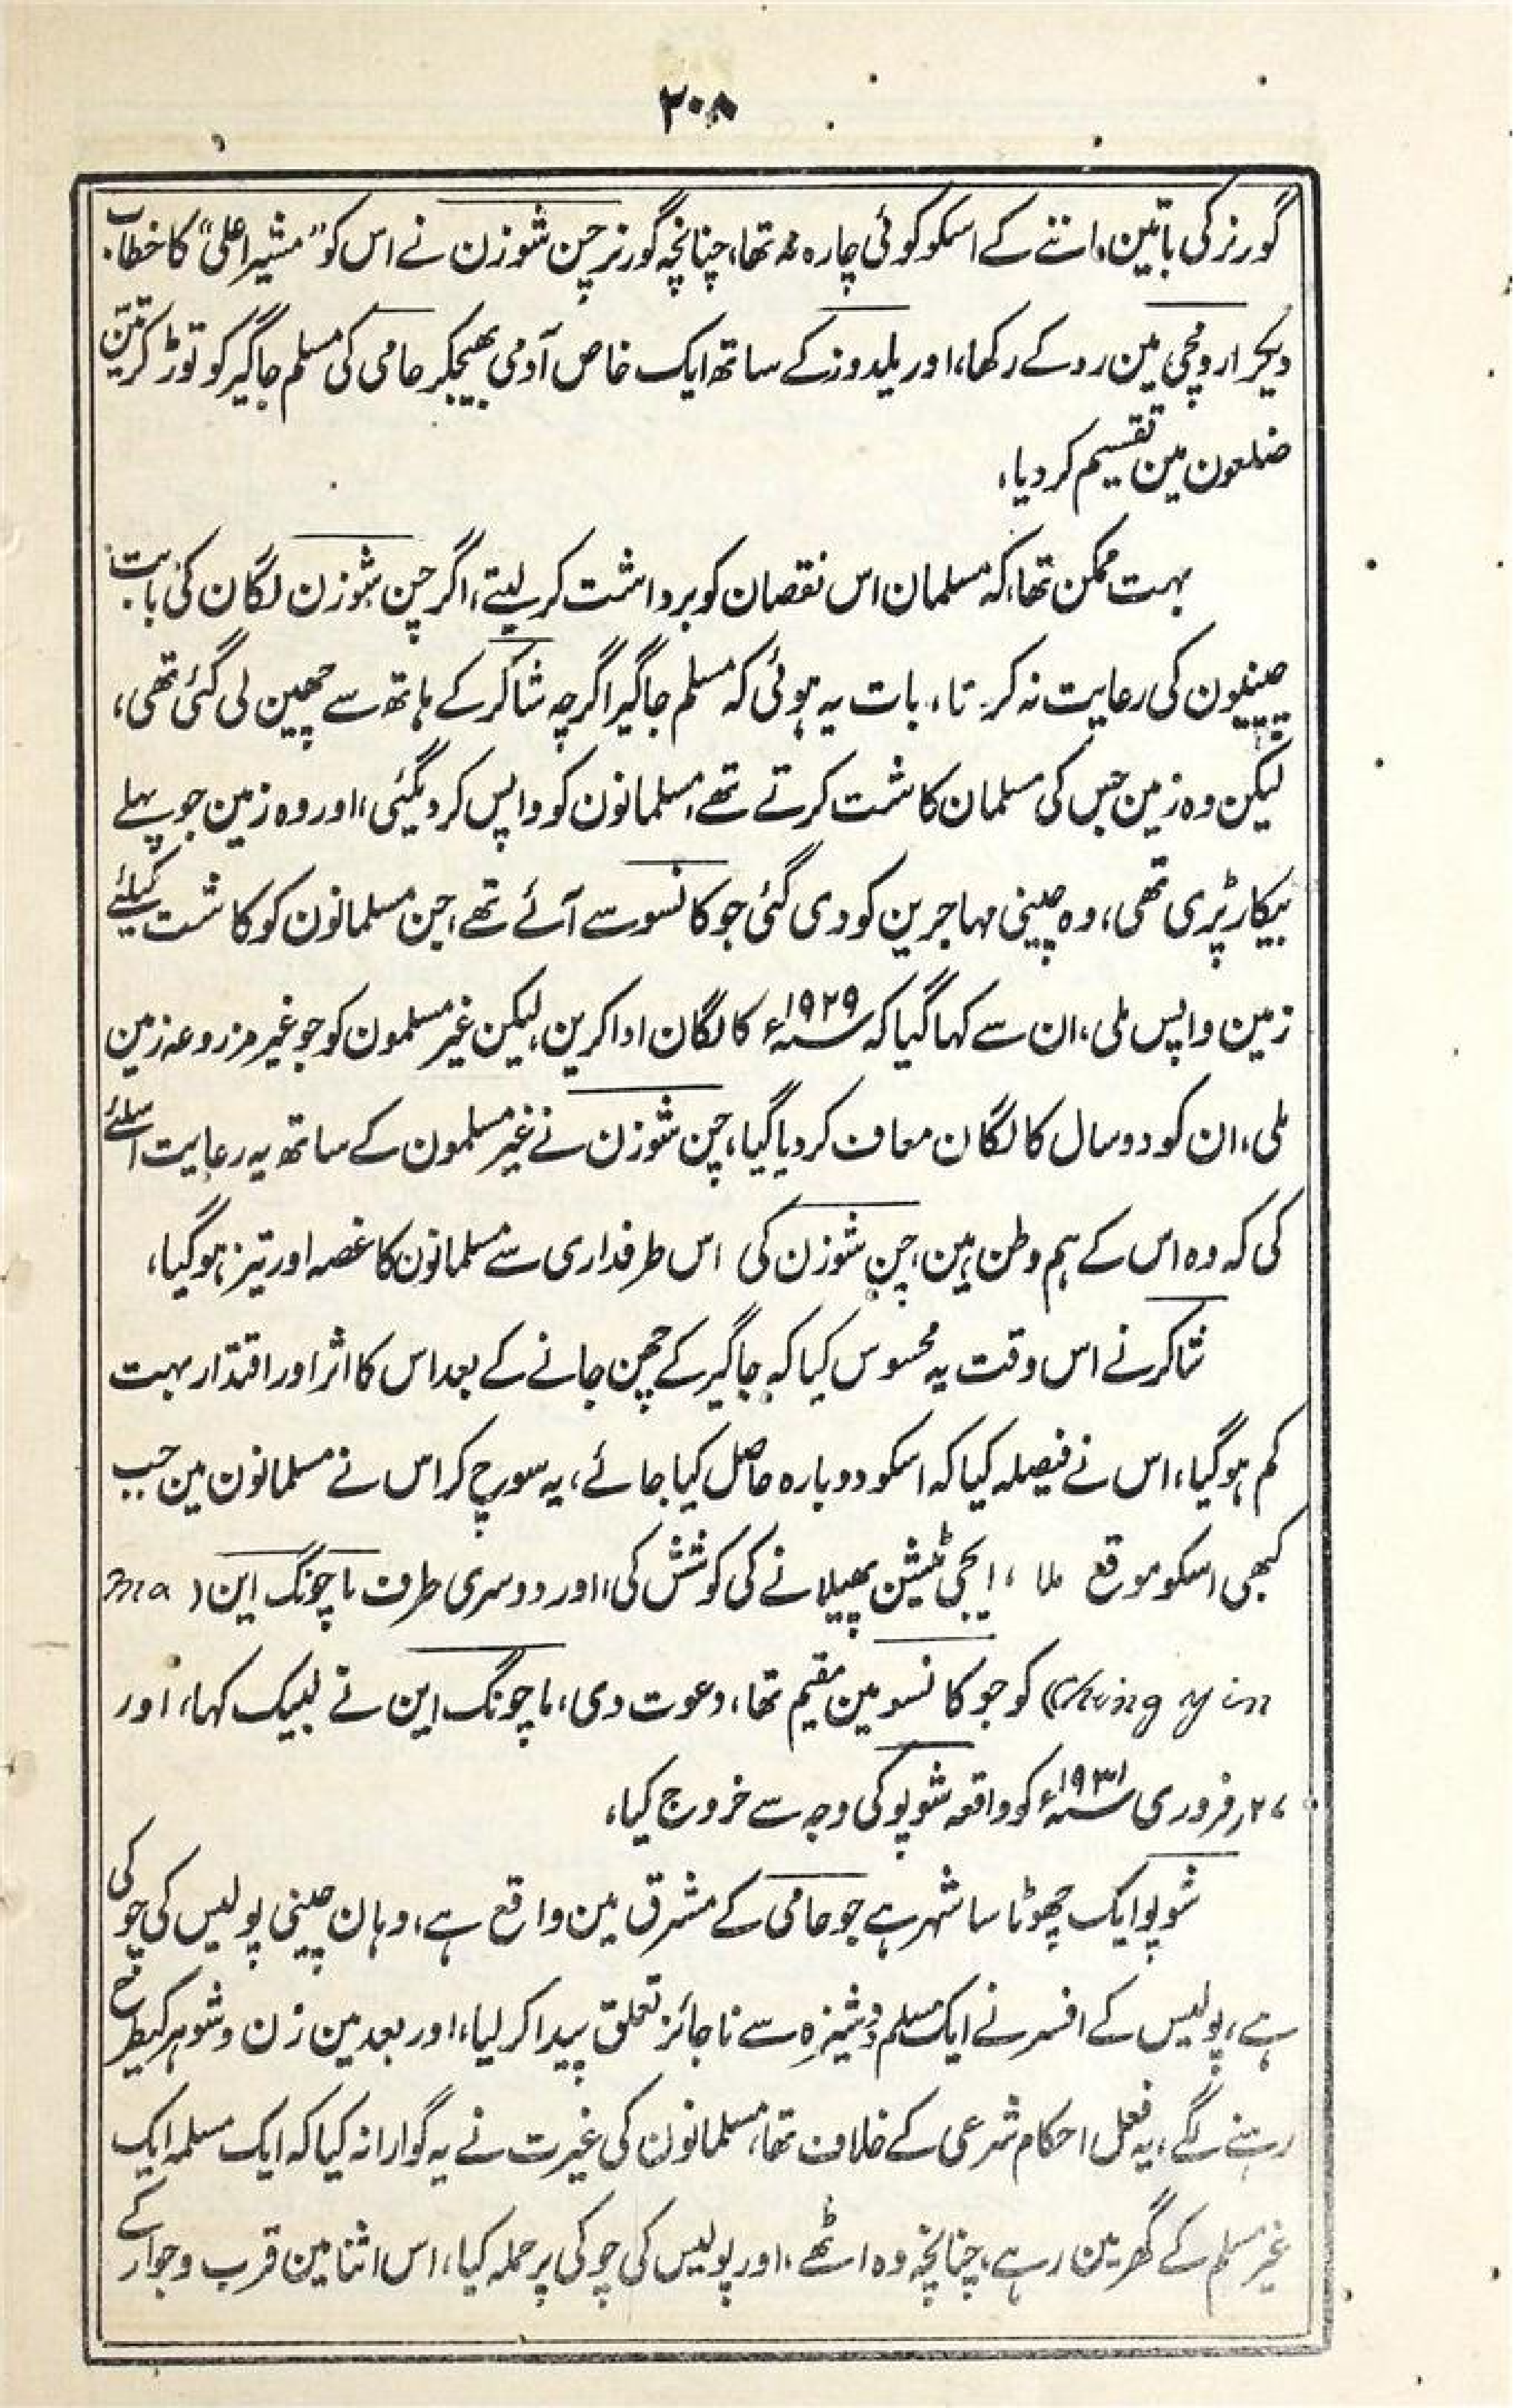 ۲۰۸
گورنر کی باتین ماننے کے اسکو کوئی چارہ نہ تھا، چنانچہ گورنر چن شوزن نے اس کو "مشیر اعلی" کا خطاب
دیکر ارومچی مین روکے رکھا، اور یلدوز کے ساتھ ایک خاص آدمی بھیجکر حامی کی مسلم جاگیر کو توڑ کر تین
ضلعون مین تقسیم کر دیا،
بہت ممکن تھا، کہ مسلمان اس نقصان کو برداشت کر لیتے، اگر چن شوزن لگان کی بابت
چینیون کی رعایت نہ کرتا، بات یہ ہوئی کہ مسلم جاگیر اگرچہ شاکر کے ہاتھ سے چھین لی گئی تھی،
لیکن وہ زمین جس کی مسلمان کاشت کرتے تھے، مسلمانون کو واپس کر دیگئی، اور وہ زمین جو پہلے
بیکار پڑی تھی، وہ چینی مہاجرین کو دی گئی جو کانسو سے آئے تھے، جن مسلمانون کو کاشت کیلئے
زمین واپس ملی، ان سے کہا گیا کہ ۱۹۲۹ء کا لگان ادا کرین، لیکن غیر مسلمون کو جو غیر مزروعہ زمین
ملی، ان کو دو سال کا لگان معاف کر دیا گیا، چن شوزن نے غیر مسلمون کے ساتھ یہ رعایت اسلئے
کی کہ وہ اس کے ہم وطن ہین، چن شوزن کی اس طرفداری سے مسلمانون کا غصہ اور تیز ہو گیا،
شاکر نے اس وقت یہ محسوس کیا کہ جاگیر کے چھن جانے کے بعد اس کا اثر اور اقتدار بہت
کم ہو گیا، اس نے فیصلہ کیا کہ اسکو دوبارہ حاصل کیا جائے، یہ سوچ کر اس نے مسلمانون مین جب
کبھی اسکو موقع ملا، ایجی ٹیشن پھیلانے کی کوشش کی، اور دوسری طرف ماچونگ این (ma
Chung yin) کو جو کانسو مین مقیم تھا، دعوت دی، ماچونگ این نے لبیک کہا، اور
۲۷ر فروری ۱۹۳۱ء کو واقعہ شوپو کی وجہ سے خروج کیا،
شوپو ایک چھوٹا سا شہر ہے جو حامی کے مشرق مین واقع ہے، وہان چینی پولیس کی چوکی
ہے، پولیس کے افسر نے ایک مسلم دوشیزہ سے ناجائز تعلق پیدا کر لیا، اور بعد مین زن و شوہر کیطرح
رہنے لگے، یہ فعل احکام شرعی کے خلاف تھا، مسلمانون کی غیرت نے یہ گوارا نہ کیا کہ ایک مسلمہ ایک
غیر مسلم کے گھر مین رہے، چنانچہ وہ اٹھے، اور پولیس کی چوکی پر حملہ کیا، اس اثنا مین قرب و جوار کے